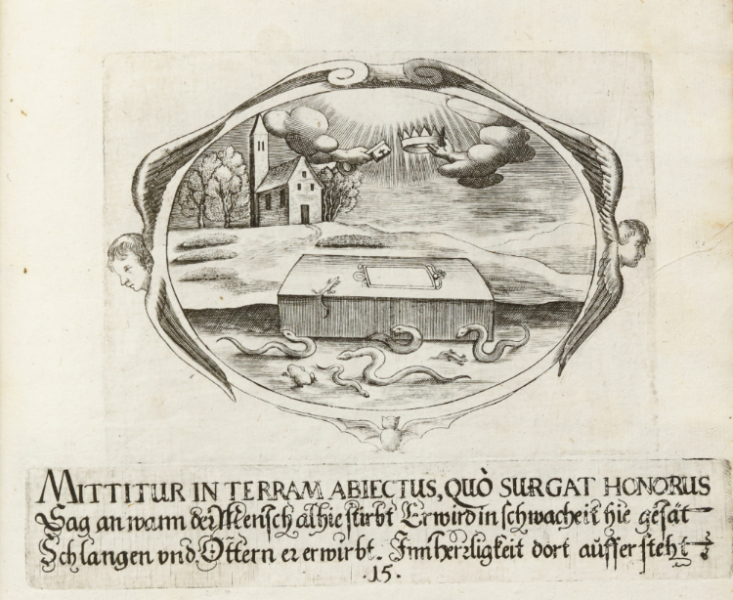 MITTITUR IN TERRAM ABIECTUS, QUÒ SURGAT HONORUS
Sag an wann der Mensch alhie stirbt Er wird in schwacheit hie gesät
Schlangen vnd Ottern er erwirbt. Inn herrligkeit dort auffersteht
.15.